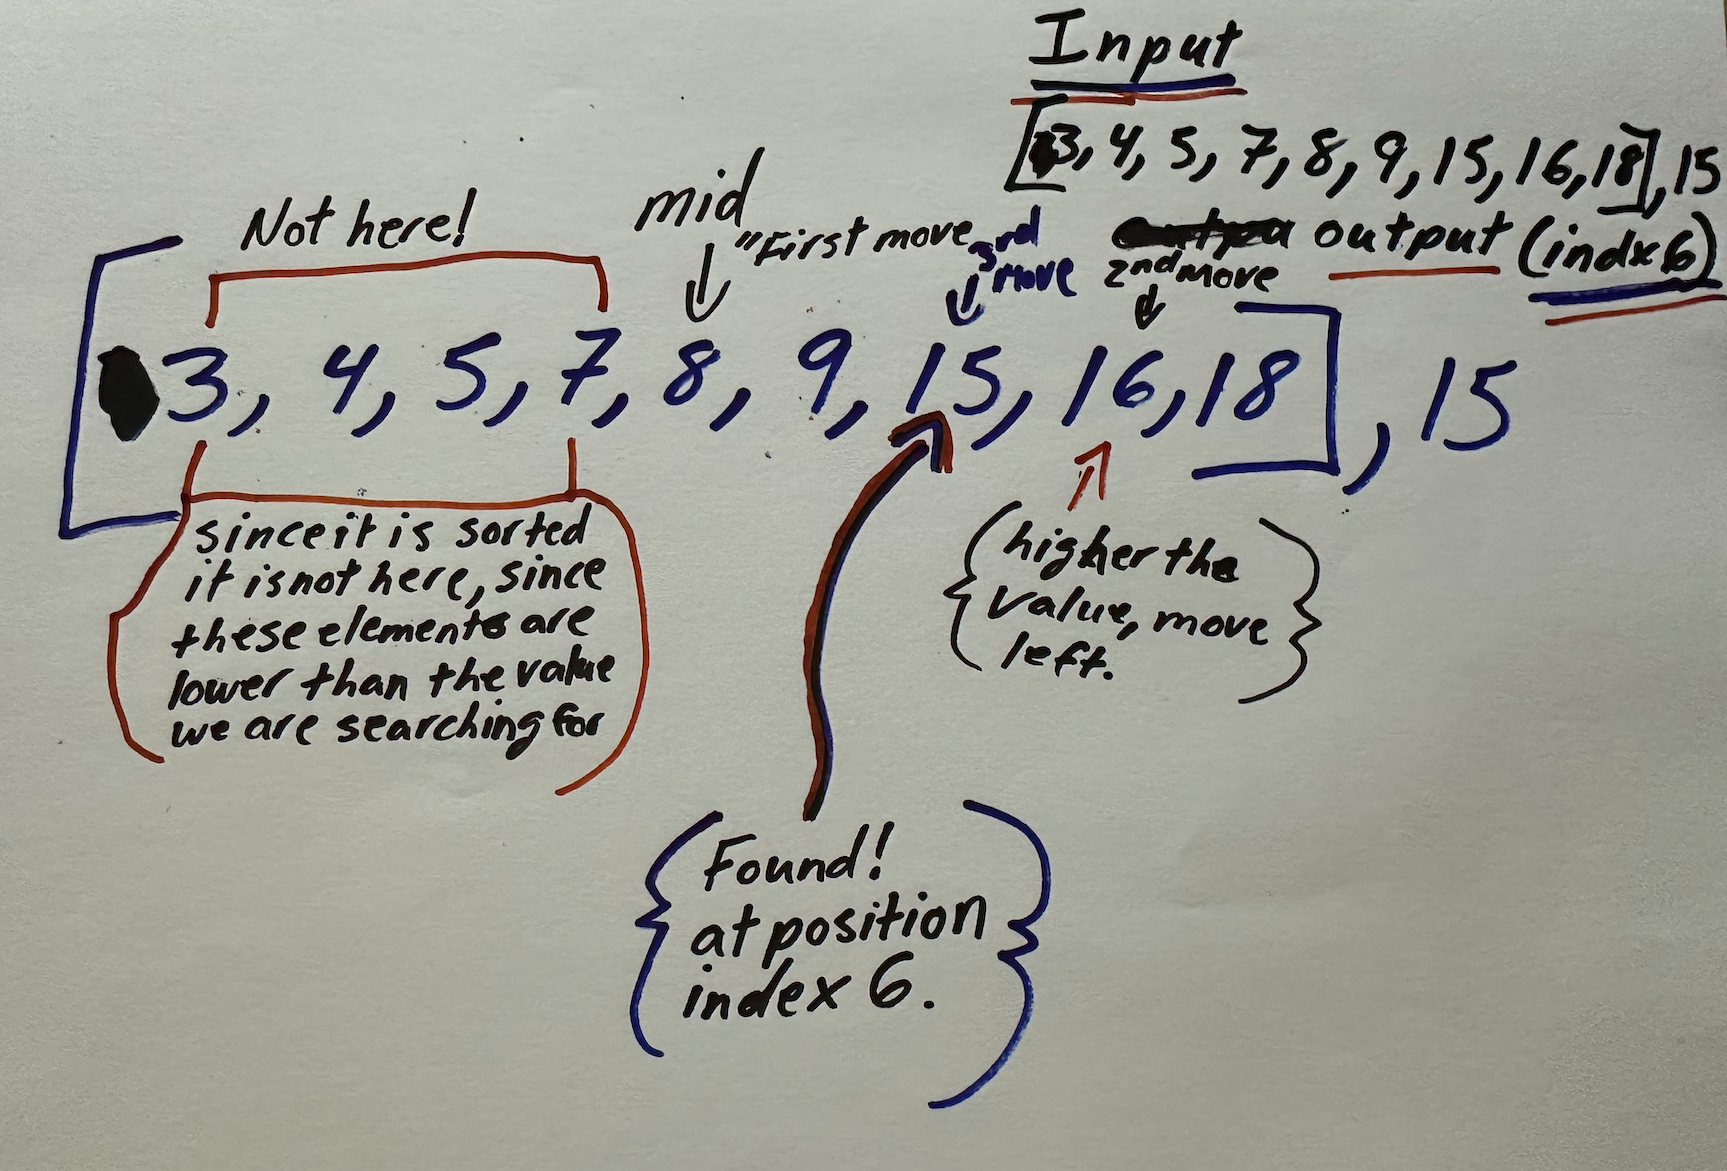 Input
[3, 4, 5, 7, 8, 9, 15, 16, 18], 15
output (indx 6)
Not here!
mid
"First move
3rd
move
2nd move
[3, 4, 5, 7, 8, 9, 15, 16, 18], 15
since it is sorted
it is not here, since
these elements are
lower than the value
we are searching for
{higher the
value, move
left.}
{Found!
at position
index 6.}